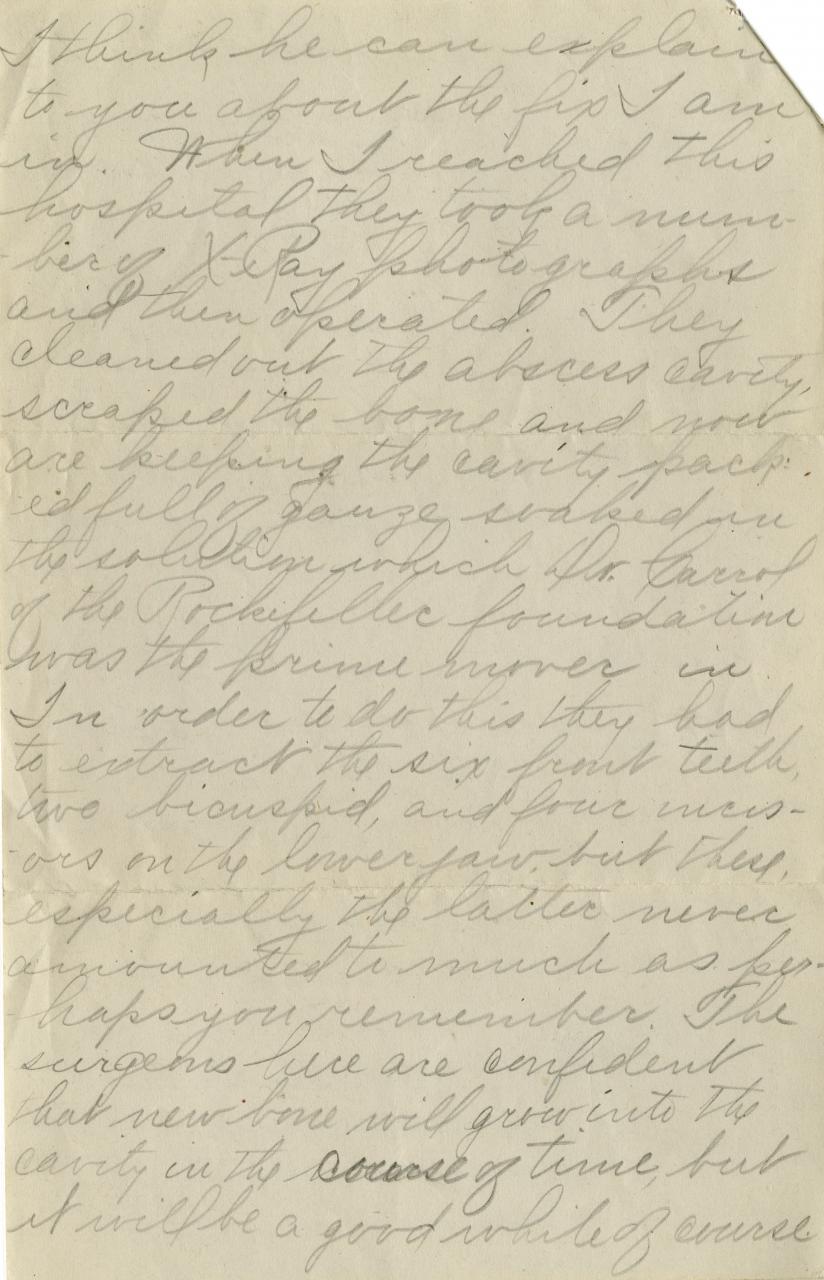 I think he can explain
to you about the fix I am
in. When I reached this
hospital they took a num-
-ber of X-Ray photographs
and then operated. They
cleaned out the abscess cavity,
scraped the bone and now
are keeping the cavity pack-
-ed full of gauze soaked in
the solution which Dr. Carrol
of the Rockefeller foundation
was the prime mover in
In order to do this they had
to extract the six front teeth,
two bicuspid, and four incis-
-ors on the lower jaw, but these,
especially the latter never
amounted to much as per-
-haps you remember. The
surgeons here are confident
that new bone will grow into the
cavity in the course of time, but
it will be a good while of course